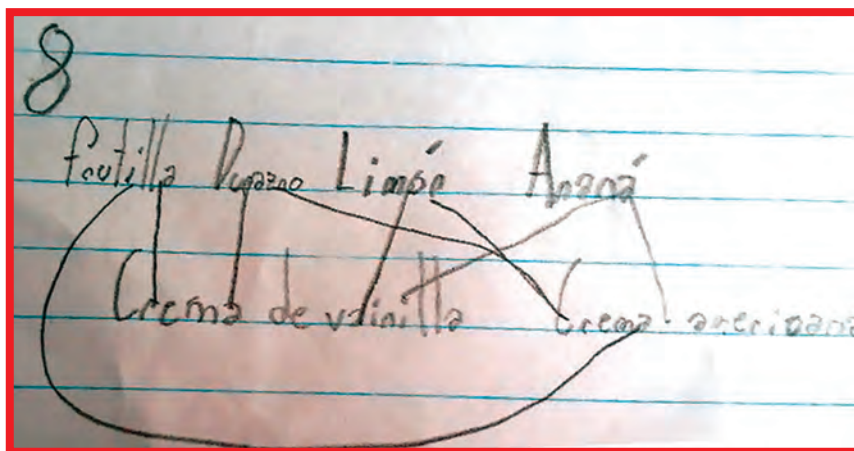 8
frutilla Durazno Limón Ananá
Crema de vainilla Crema americana